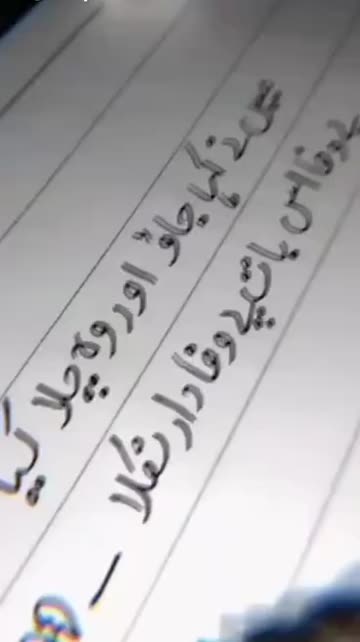 میں نے کہا جاؤ اور وہ چلا گیا
بے وفا اس بات پے وفادار نکلا ـ